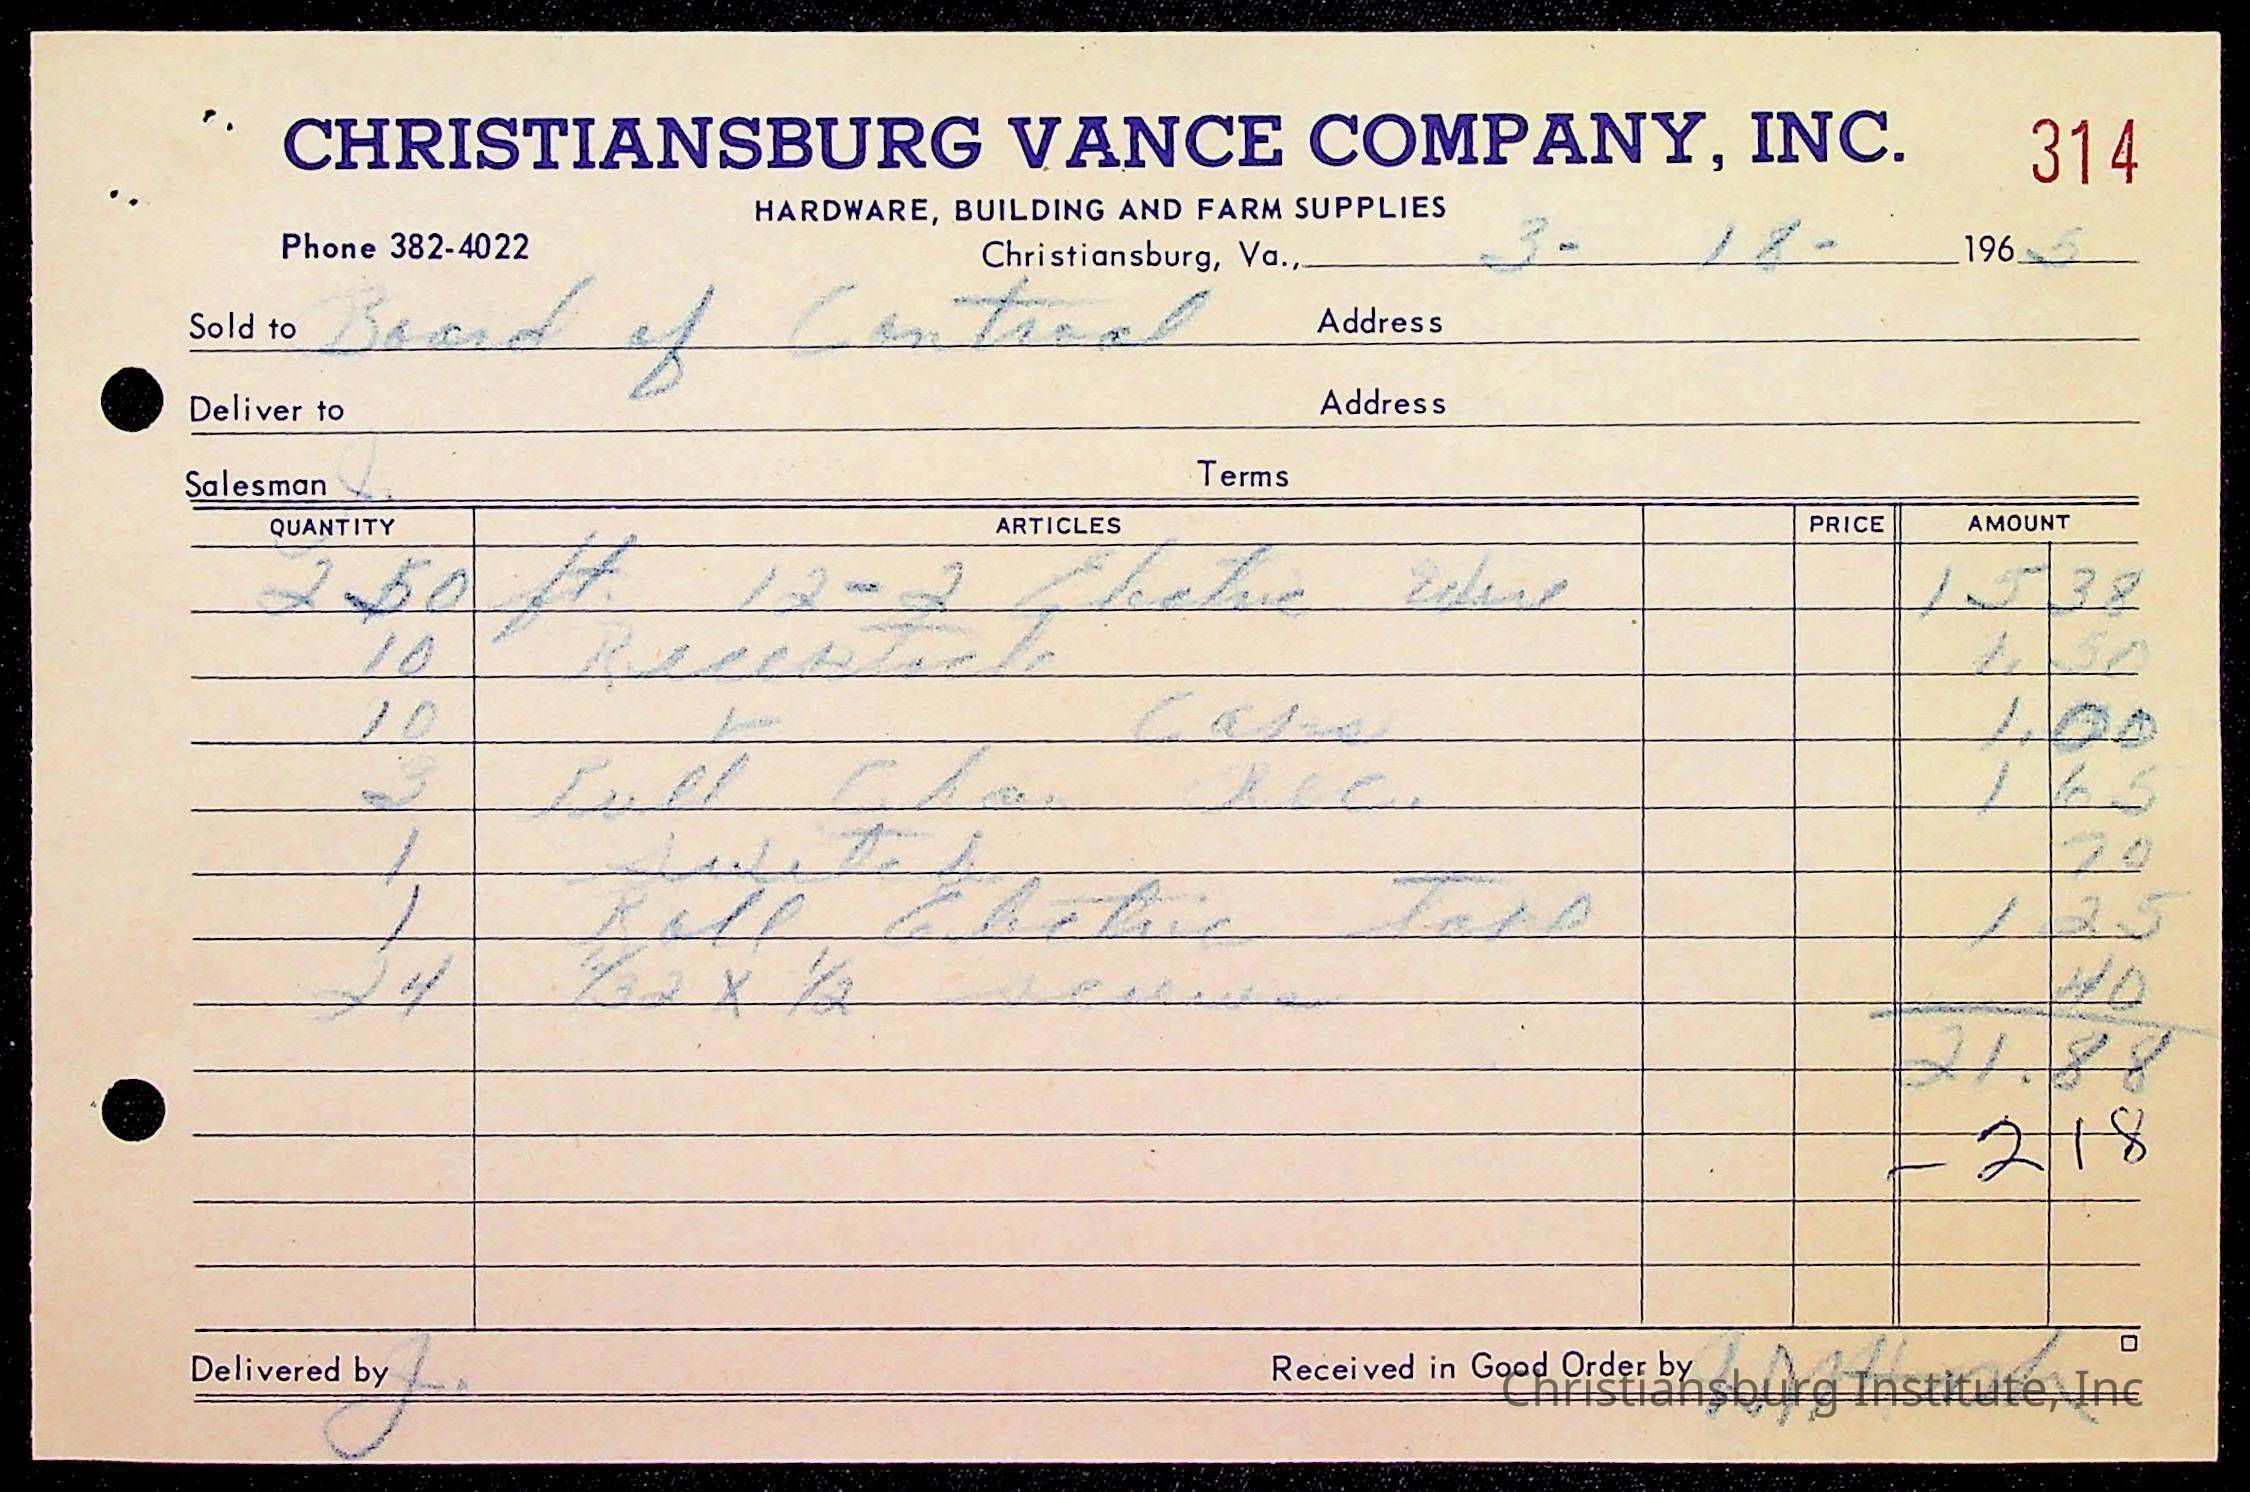 CHRISTIANSBURG VANCE COMPANY, INC. 314
HARDWARE, BUILDING AND FARM SUPPLIES
Phone 382-4022 Christiansburg, Va., 3- 18- 1965
Sold to Board of Control Address
Deliver to Address
Salesman J. Terms
QUANTITY ARTICLES PRICE AMOUNT
250 ft. 12-2 Electric Wire 15 38
10 Receptacle 1.50
10 Cover 1.00
3 1 65
1 Switch 70
1 Roll Electric Tape 1 25
24 /32 X 1/2 screws 40
21.88
- 2 18
Delivered by J. Received in Good Order by
Christiansburg Institute, Inc